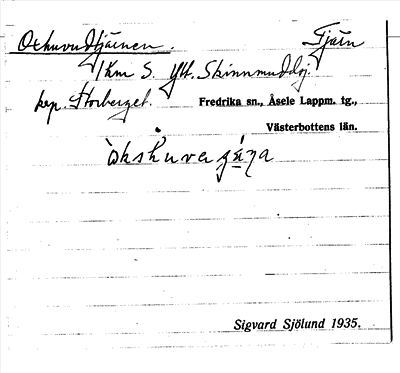 Oxhuvudtjärnen. Tjärn
1 Km S. Ytt. Skinnmuddsj.
kep. Storberget. Fredrika sn., Åsele Lappm. tg.,
Västerbottens län.
Sigvard Sjölund 1935.